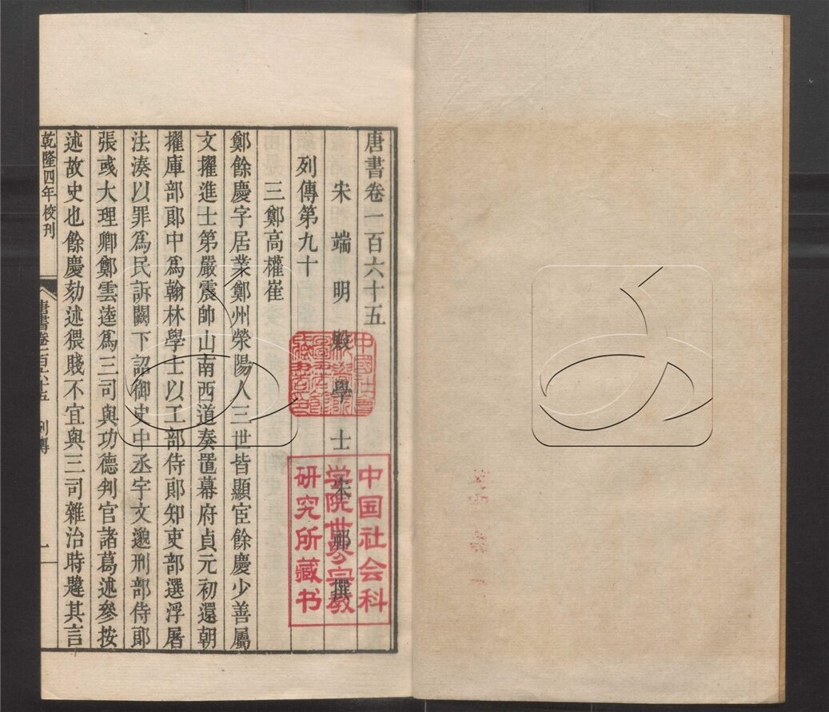 唐書卷一百六十五
宋端明殿學士宋祁撰
列傳第九十
三鄭高權崔
鄭餘慶字居業鄭州滎陽人三世皆顯宦餘慶少善屬
文擢進士第嚴震帥山南西道奏置幕府貞元初還朝
擢庫部郎中爲翰林學士以工部侍郎知吏部選浮屠
法湊以罪爲民訴闕下詔御史中丞宇文邈刑部侍郎
張彧大理卿鄭雲逵爲三司與功德判官諸葛述參按
述故史也餘慶劾述猥賤不宜與三司雜治時韙其言
乾隆四年校刊
唐書卷一百六十五 列傳
一
中国社会科
学院世界宗教
研究所藏书